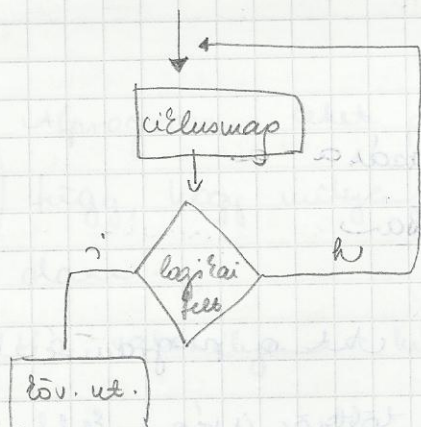 ciklusmag
i
h
logikai
felt
köv. ut.